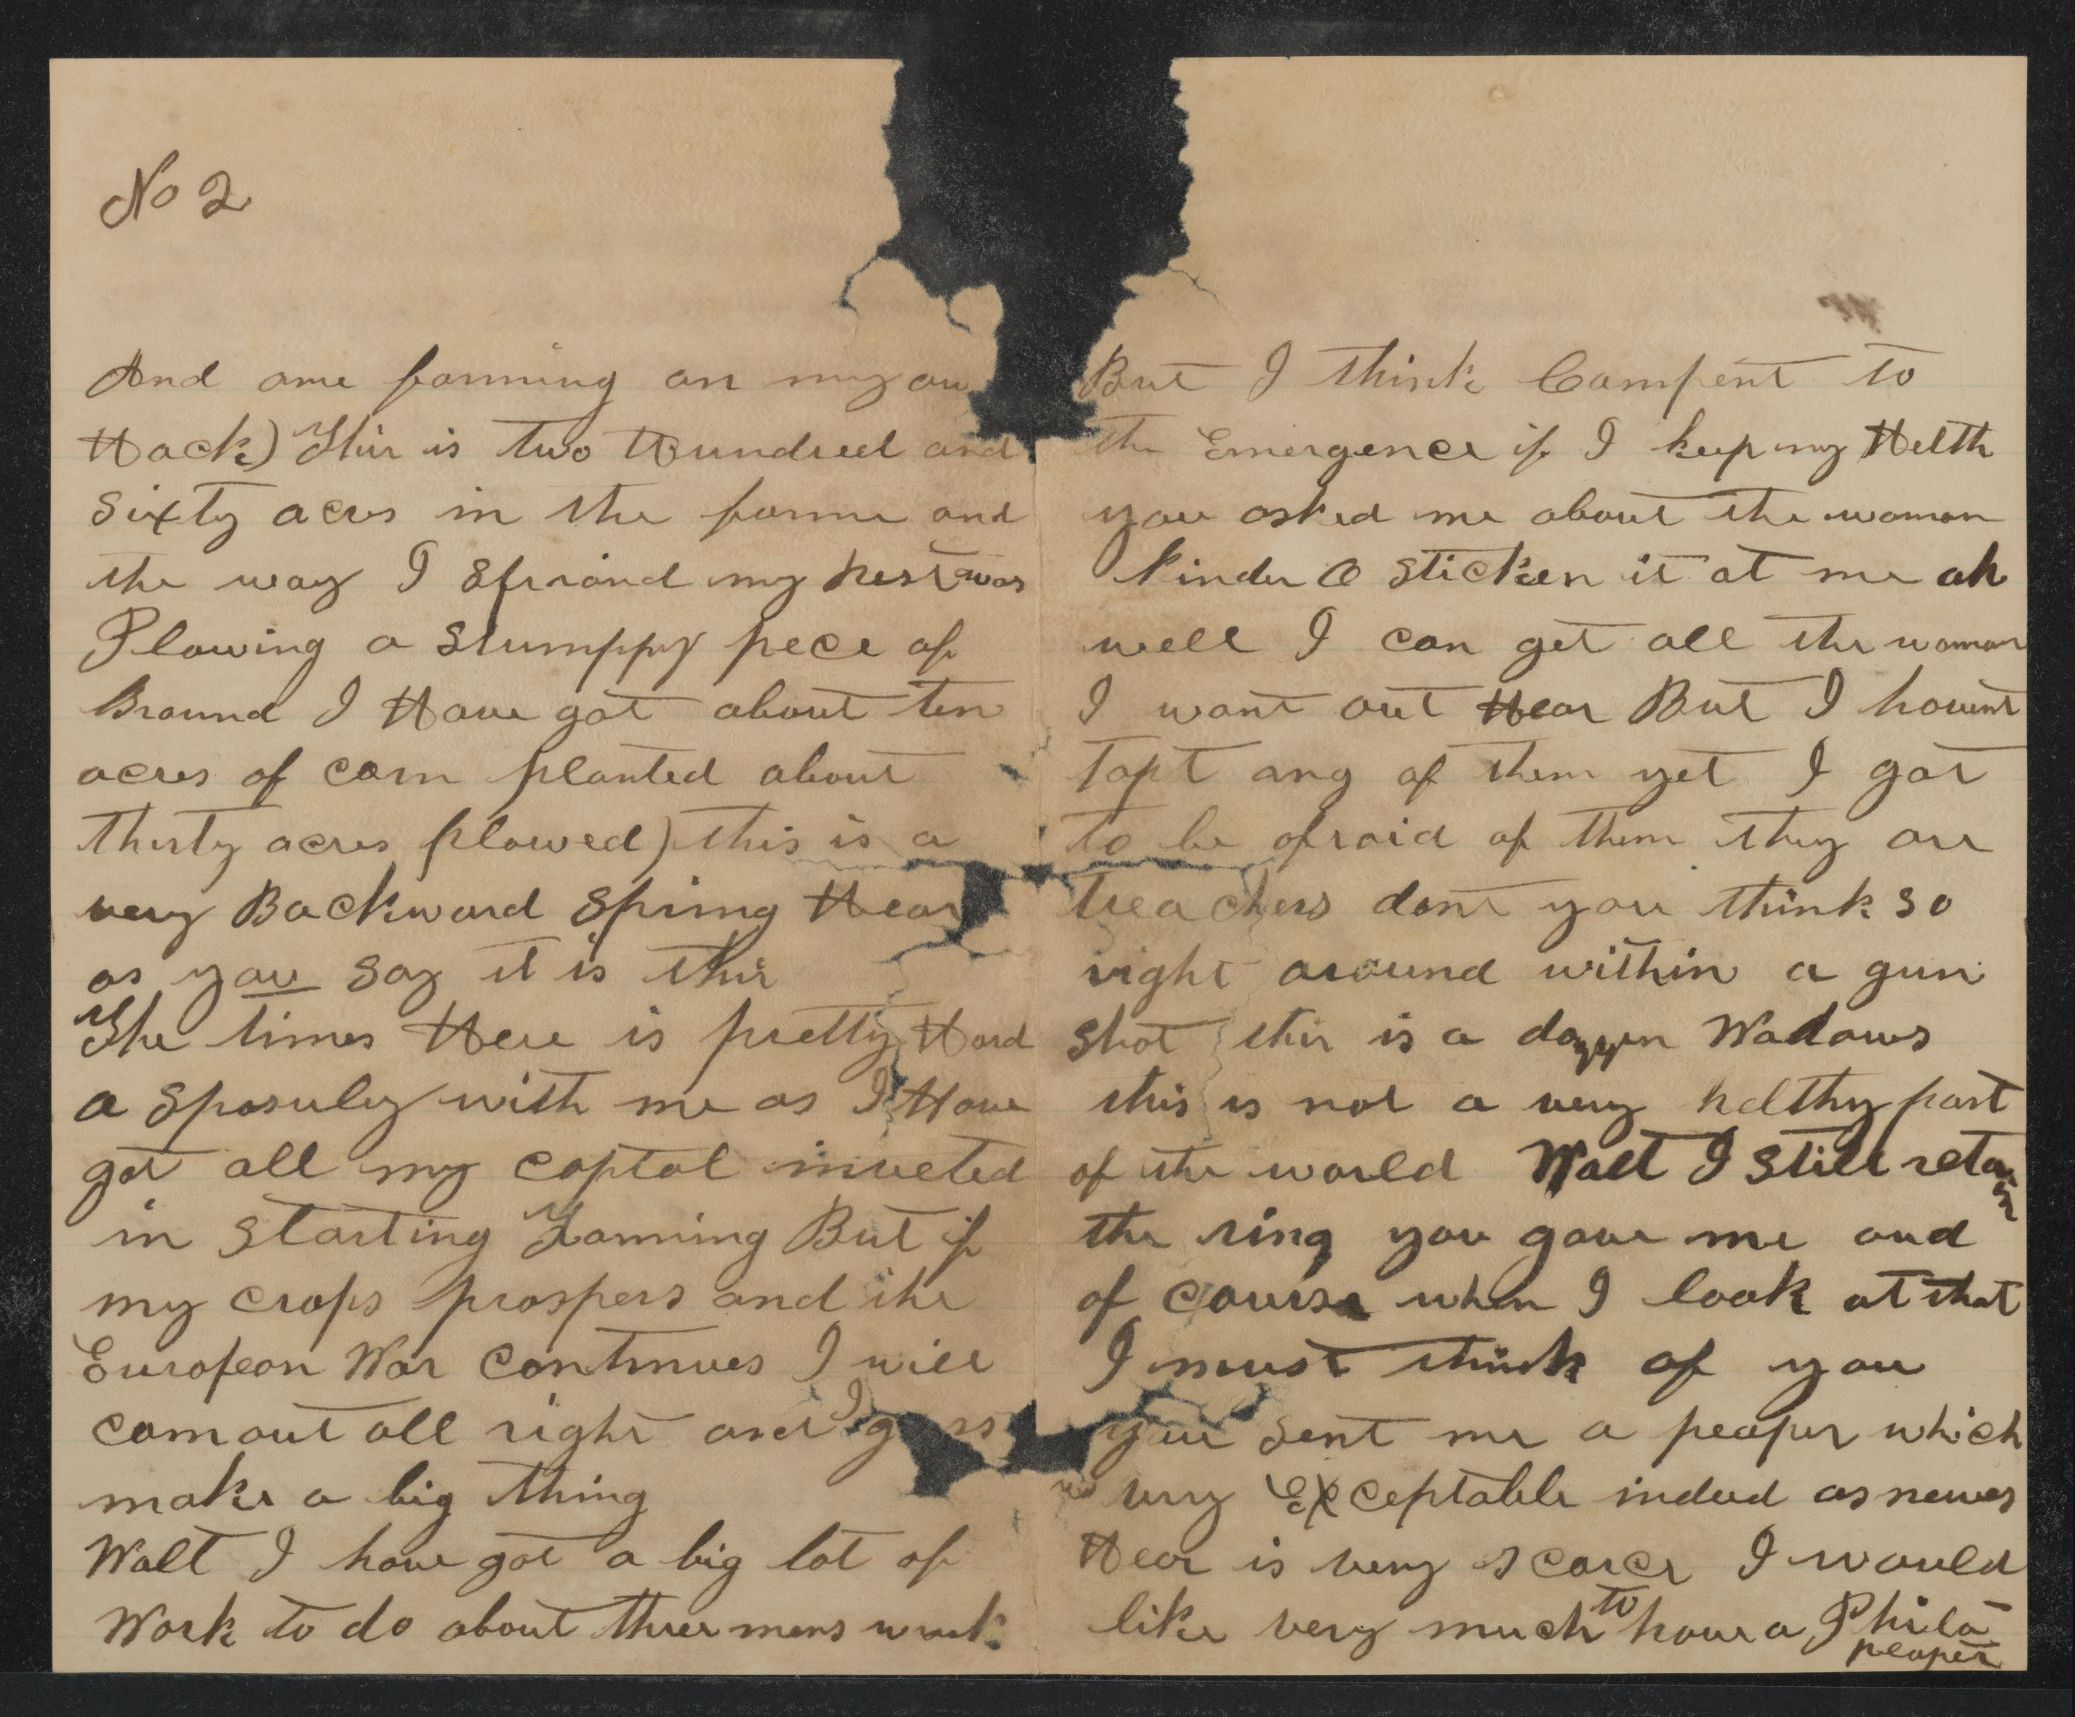 No 2
And ame farming on my ow
Hack) Thir is two Hundred and
sixty acres in the farme and
the way I spriand my hest was
Plowing a stumppy pece of
Bround I Have got about ten
acres of corn planted about
thirty acres plowed) this is a
very Backward Spring Hear
as you say it is thir
The times Here is pretty Hard
a sposuley with me as I Have
got all my captal inveted
in starting Farming But if
my crops prospers and the
European War continues I will
comout all right and I g ss
make a big thing
Walt I have got a big lot of
Work to do about three mens work
But I think Compent to
the Emergence if I keep my Helth
you asked me about the woman
kinder a sticken it at me ah
well I can get all the woman
I want out Hear But I havent
Topt any of them yet I got
to be afraid of them they are
treachers dont you think so
right around within a gun
shot thir is a dozzen Wadows
this is not a very helthy part
of the world Walt I still retain
the ring you gave me and
of course when I look at that
I must think of you
you sent me a peaper which
very Exceptable indeed as newes
Hear is very scarce I would
like very much to have a Phila
peaper